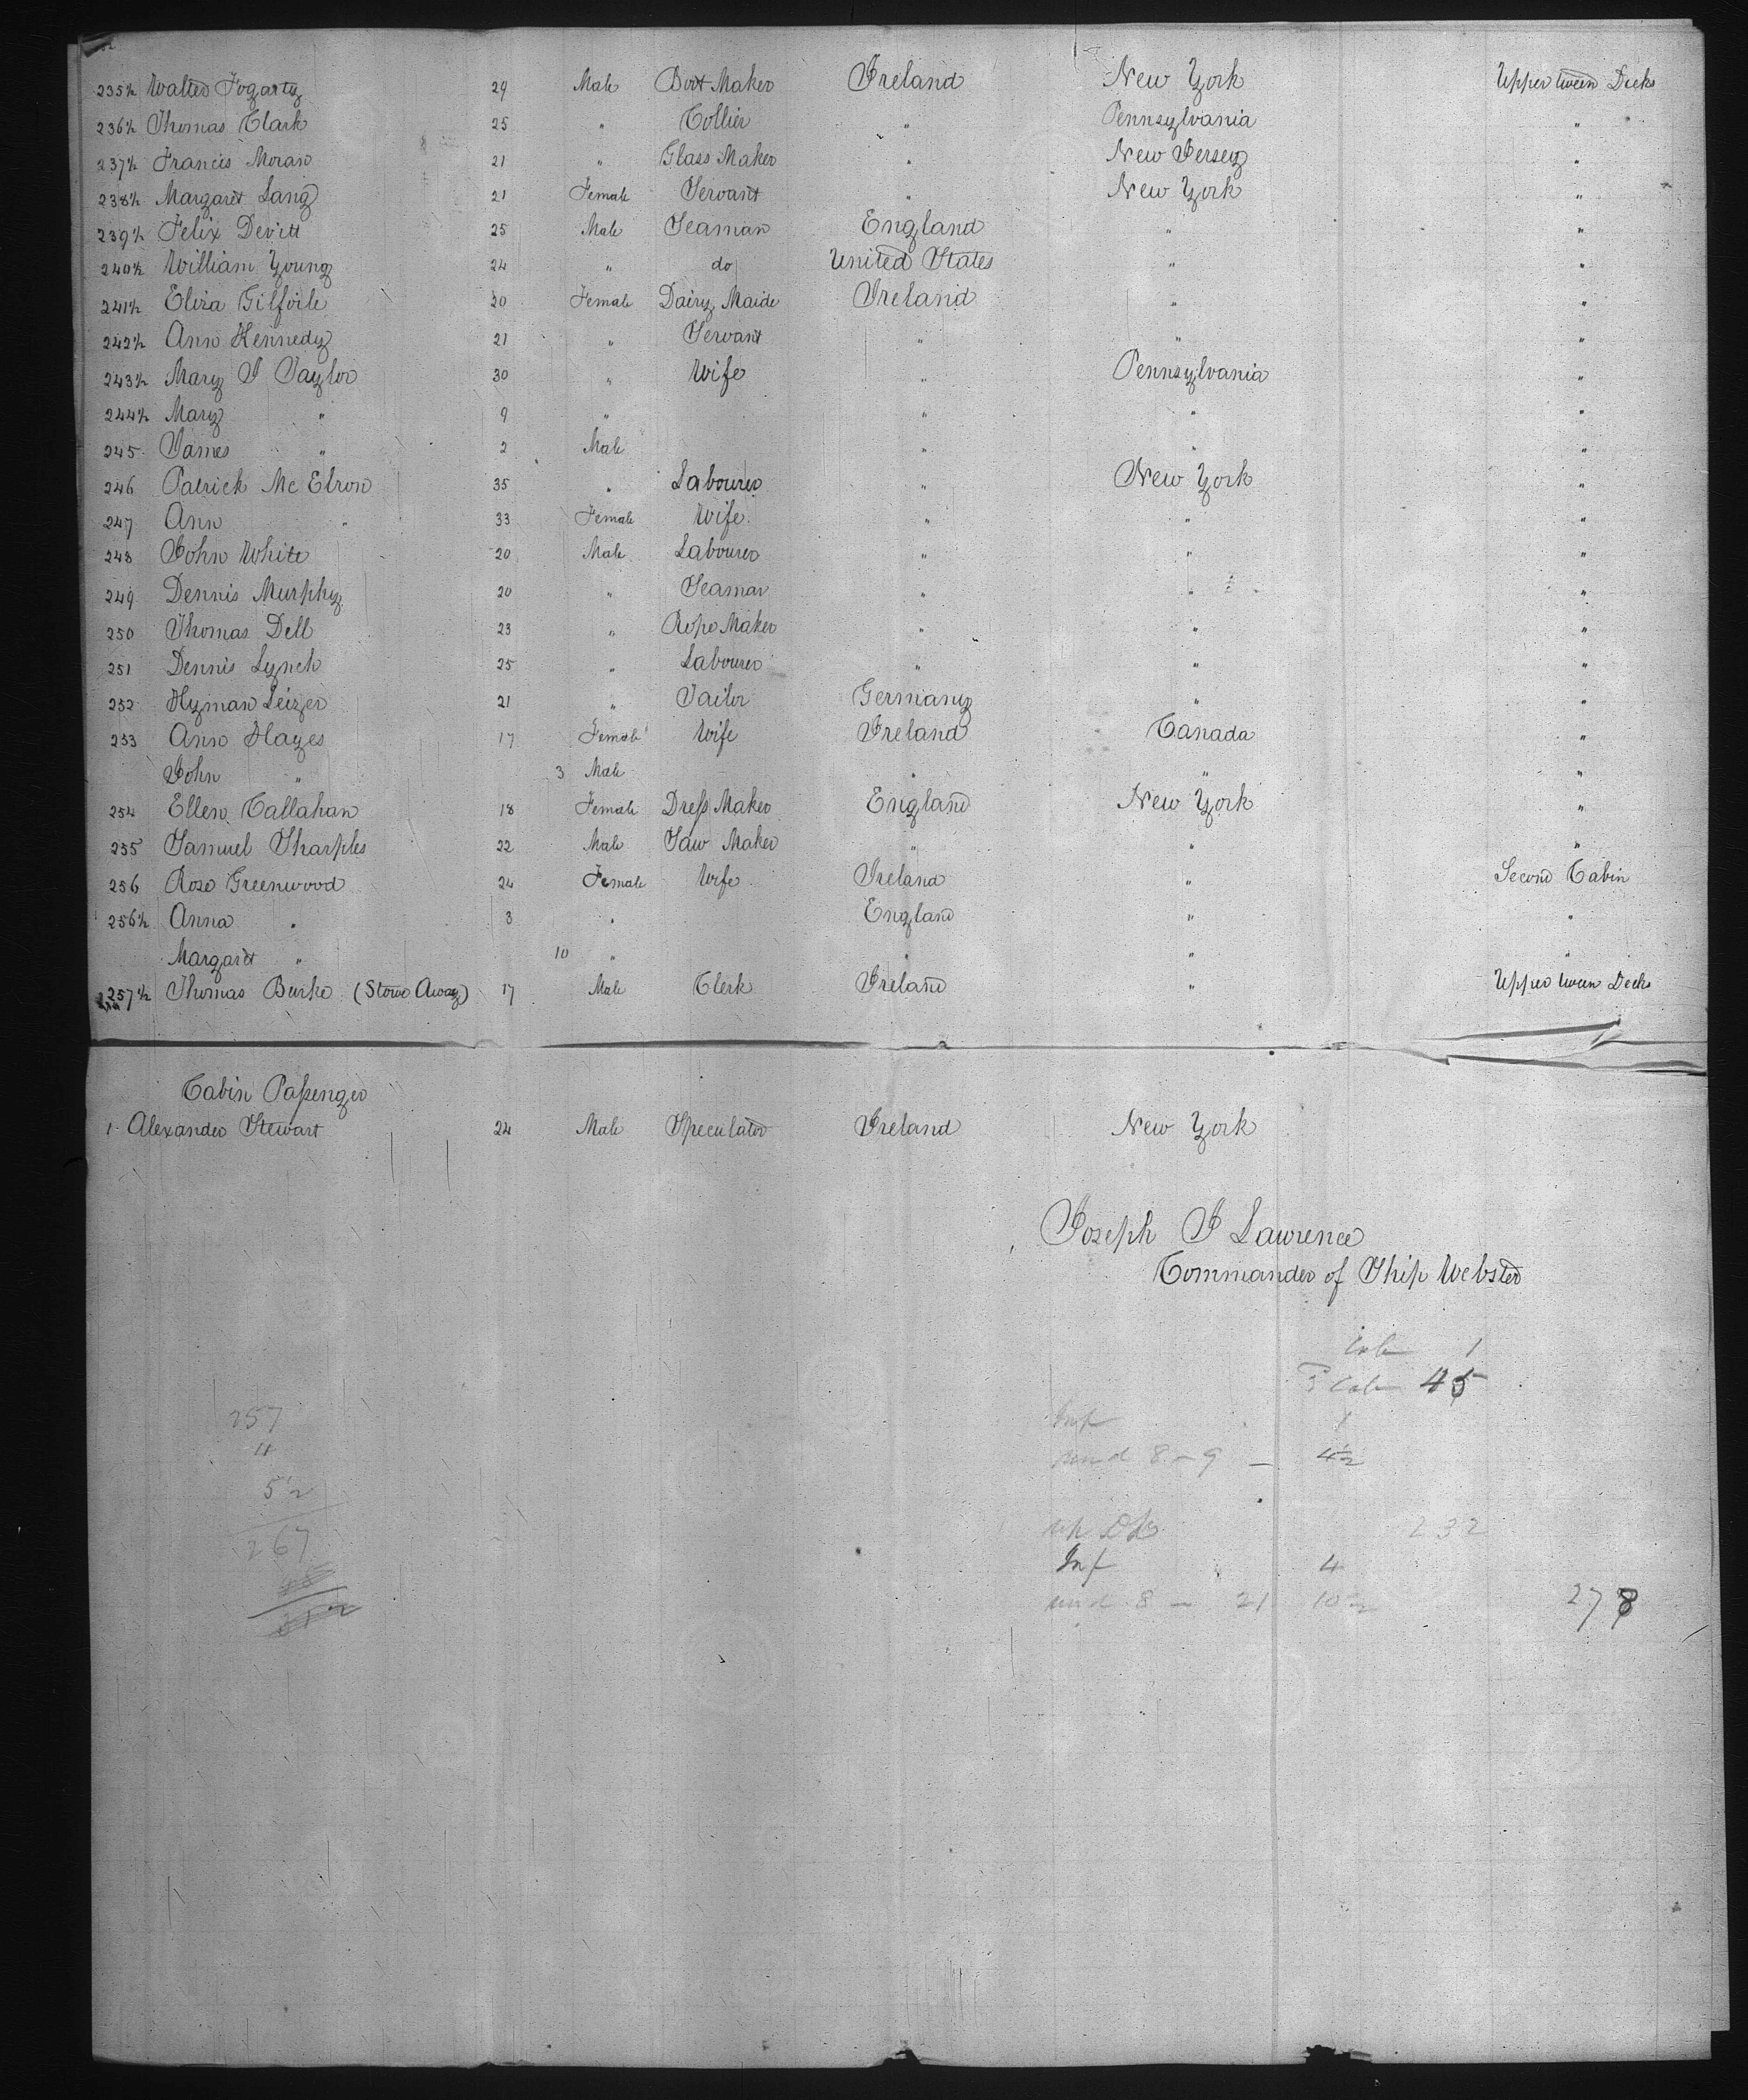 235½ Walter Fogarty 29 Male Boot Maker Ireland New York Upper tween Decks
236½ Thomas Clark 25 " Collier " Pennsylvania "
237½ Francis Moran 21 " Glass Maker " New Jersey "
238½ Margaret Lang 21 Female Servant " New York "
239½ Felix Devitt 25 Male Seaman England " "
240½ William Young 24 " do United States " "
241½ Eliza Gilfoile 20 Female Dairy Maide Ireland " "
242½ Ann Kennedy 21 " Servant " " "
243½ Mary J Taylor 30 " Wife " Pennsylvania "
244½ Mary " 9 " " " "
245 James " 2 Male " " "
246 Patrick Mc Elron 35 " Labourer " New York "
247 Ann " 33 Female Wife " " "
248 John White 20 Male Labourer " " "
249 Dennis Murphy 20 " Seaman " " "
250 Thomas Dell 23 " Rope Maker " " "
251 Dennis Lynch 25 " Labourer " " "
252 Hyman Leizer 21 " Tailor Germany " "
253 Ann Hayes 17 Female Wife Ireland Canada "
John " 3 Male " " "
254 Ellen Callahan 18 Female Dress Maker England New York "
255 Samuel Sharples 22 Male Saw Maker " " "
256 Rose Greenwood 24 Female Wife Ireland " Second Cabin
256½ Anna " 3 " England " "
Margaret " 10 " " " "
257½ Thomas Burke (Stowe Away) 17 Male Clerk Ireland " Upper tween Decks
Cabin Passenger
1 Alexander Stewart 24 Male Speculator Ireland New York
Joseph J Lawrence
Commander of Ship Webster
Cab 1
2 Cab 45
257 Inf 1
11 und 8 - 9 - 4½
5½
267 up Dk 232
Inf 4
und 8 - 21 10½ 278